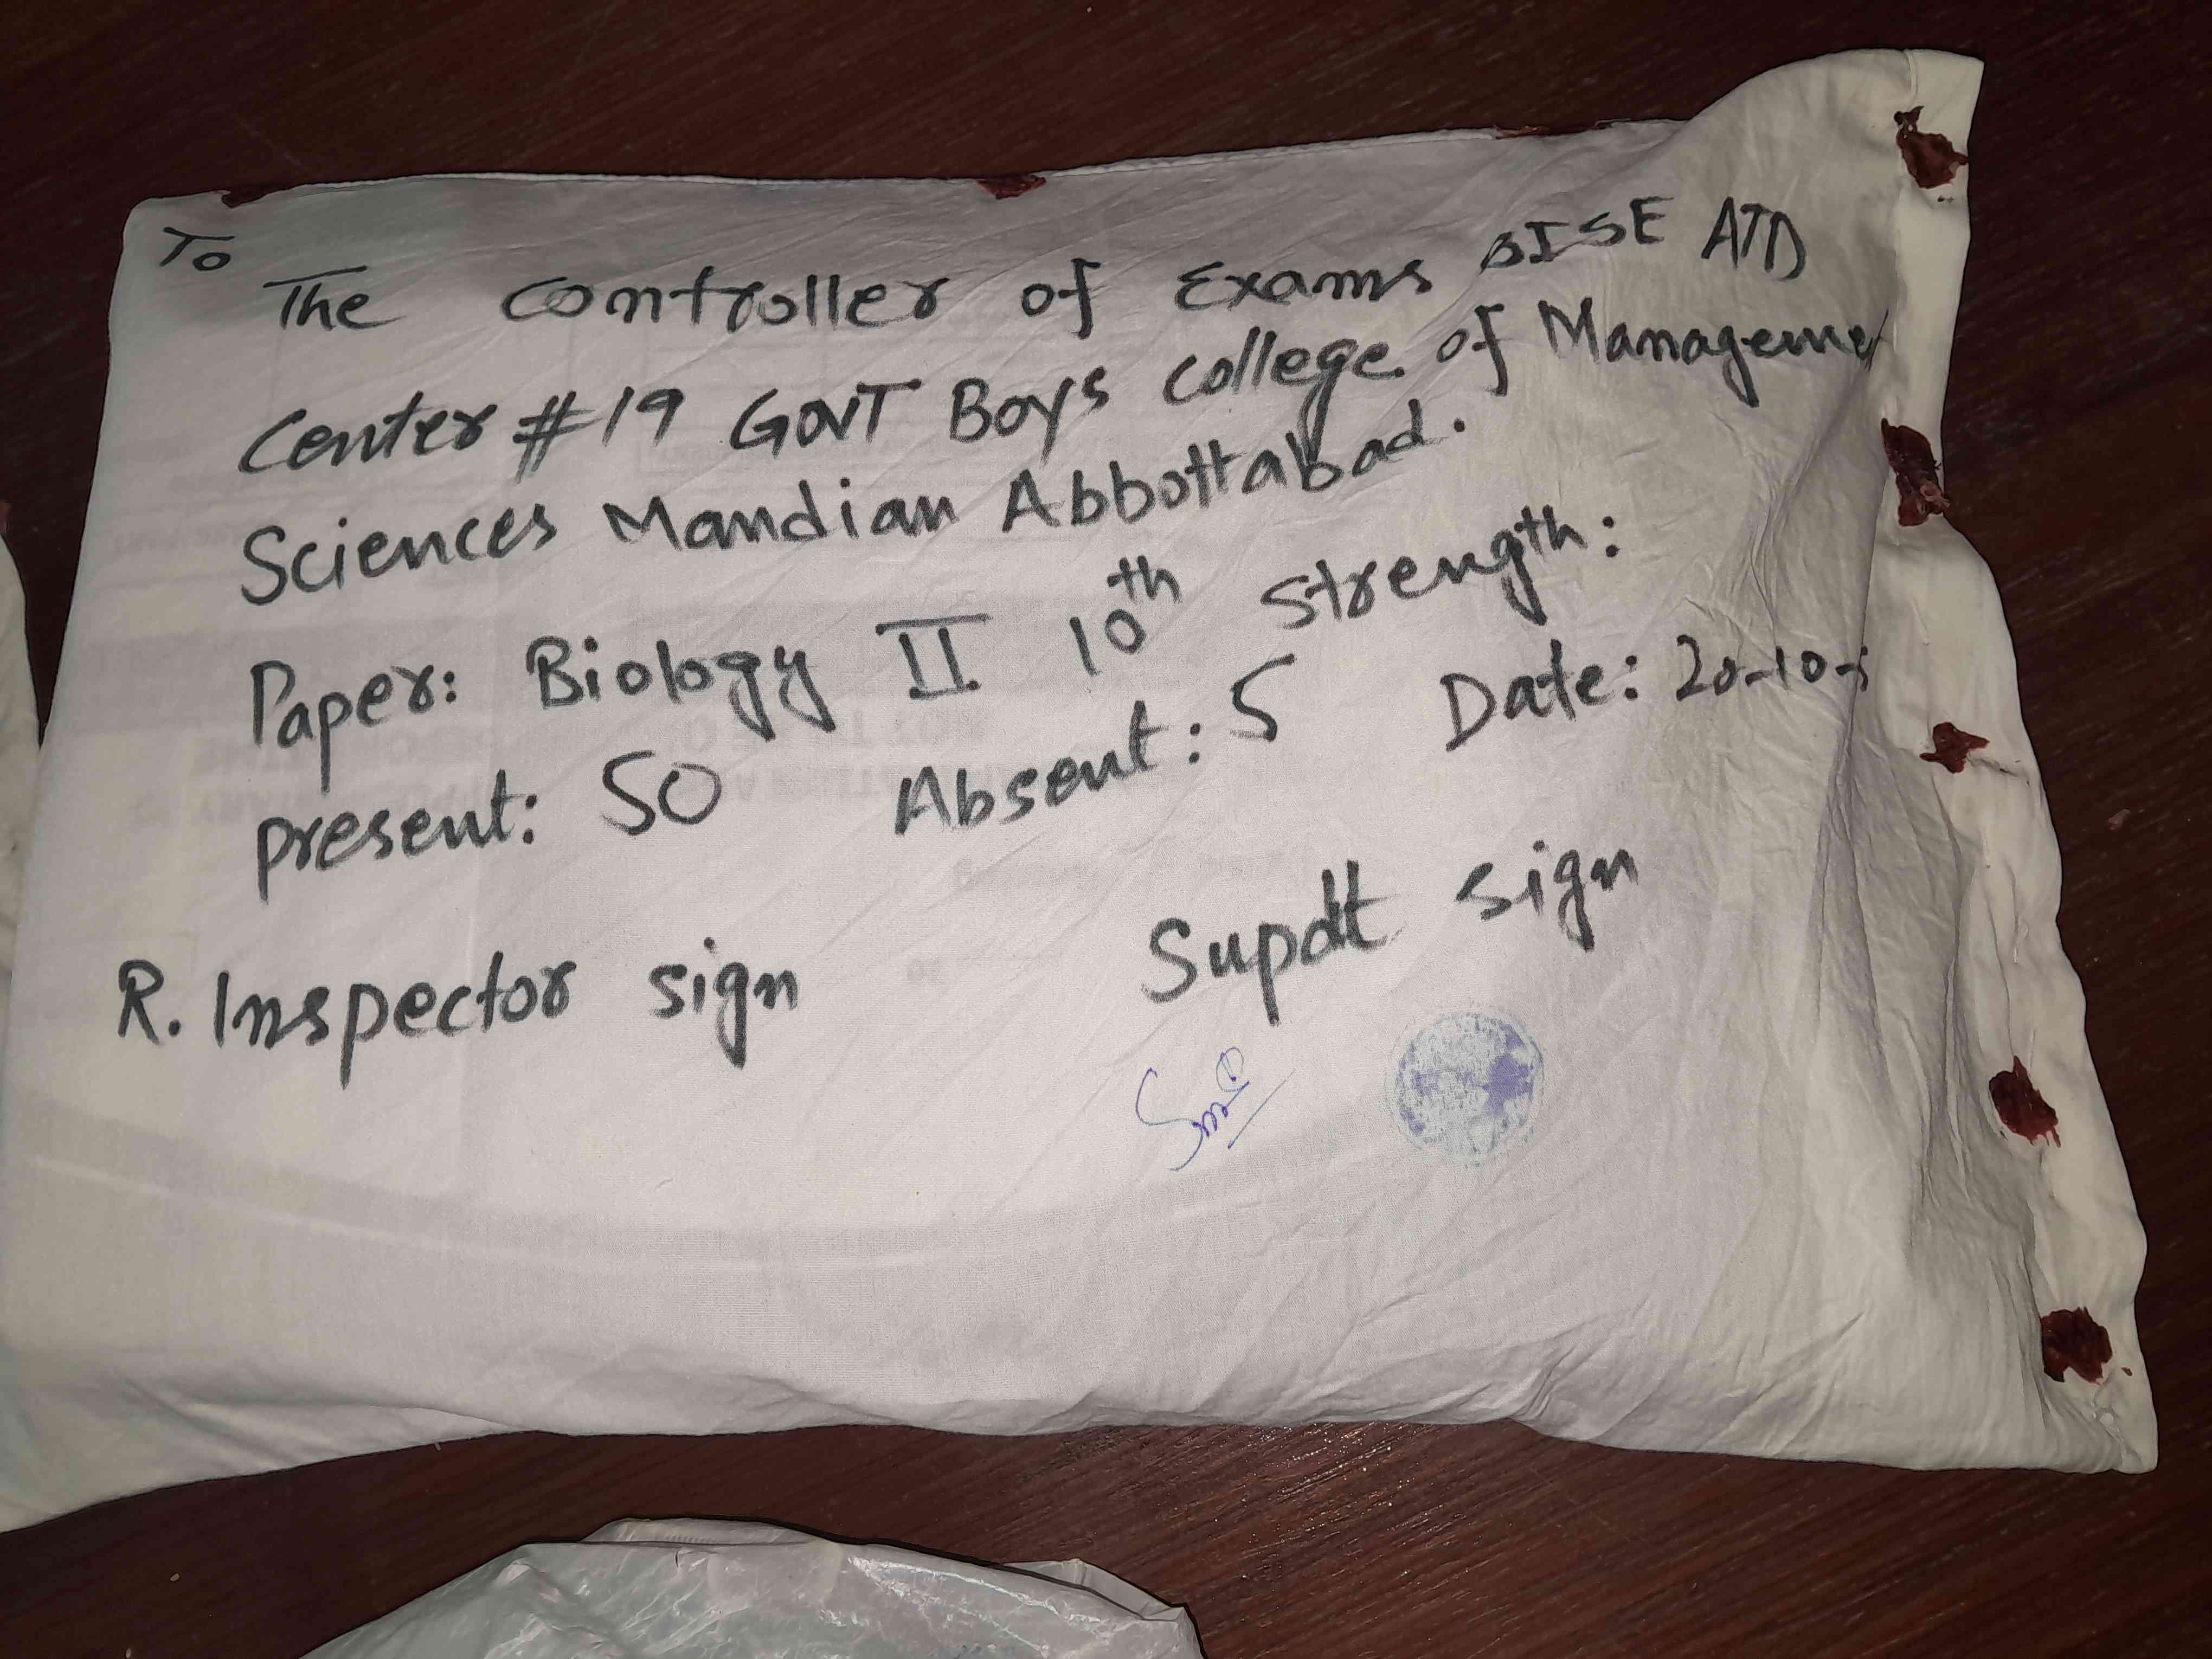 To
The Controller of Exams BISE ATD
Center #19 GOVT Boys College of Managemen
Sciences Mandian Abbottabad.
Paper: Biology II 10th Strength:
Present: 50 Absent: 5 Date: 20-10-
R. Inspector sign Supdt sign